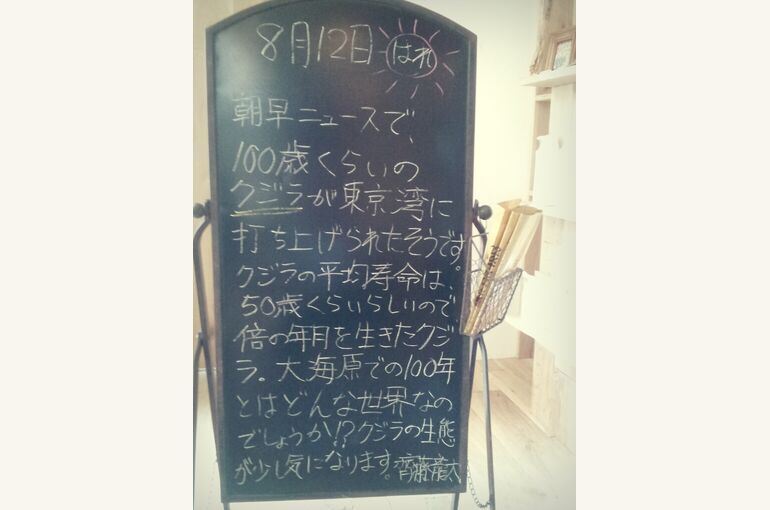 8月12日 はれ
朝早ニュースで、
100歳くらいの
クジラが東京湾に
打ち上げられたそうです。
クジラの平均寿命は、
50歳くらいらしいので、
倍の年月を生きたクジ
ラ。大海原での100年
とはどんな世界なの
でしょうか!?クジラの生態
が少し気になります。齊藤竜太